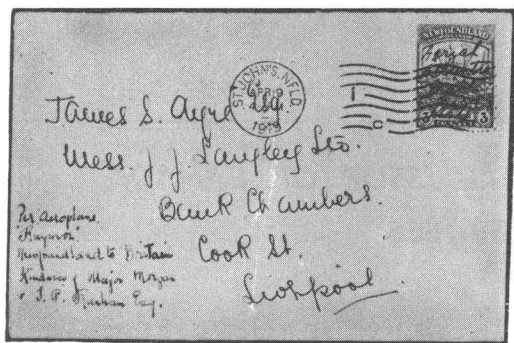 NEWFOUNDLAND
3 3
ST. JOHN'S, NFLD.
1919
James S. Ayre Esq.
Mess. J J. Langley Ltd.
Bank Chambers.
Cook St.
Liverpool
Per Aeroplane.
"Raynor"
Newfoundland to Britain
Kindness of Major Morgan
Esq.